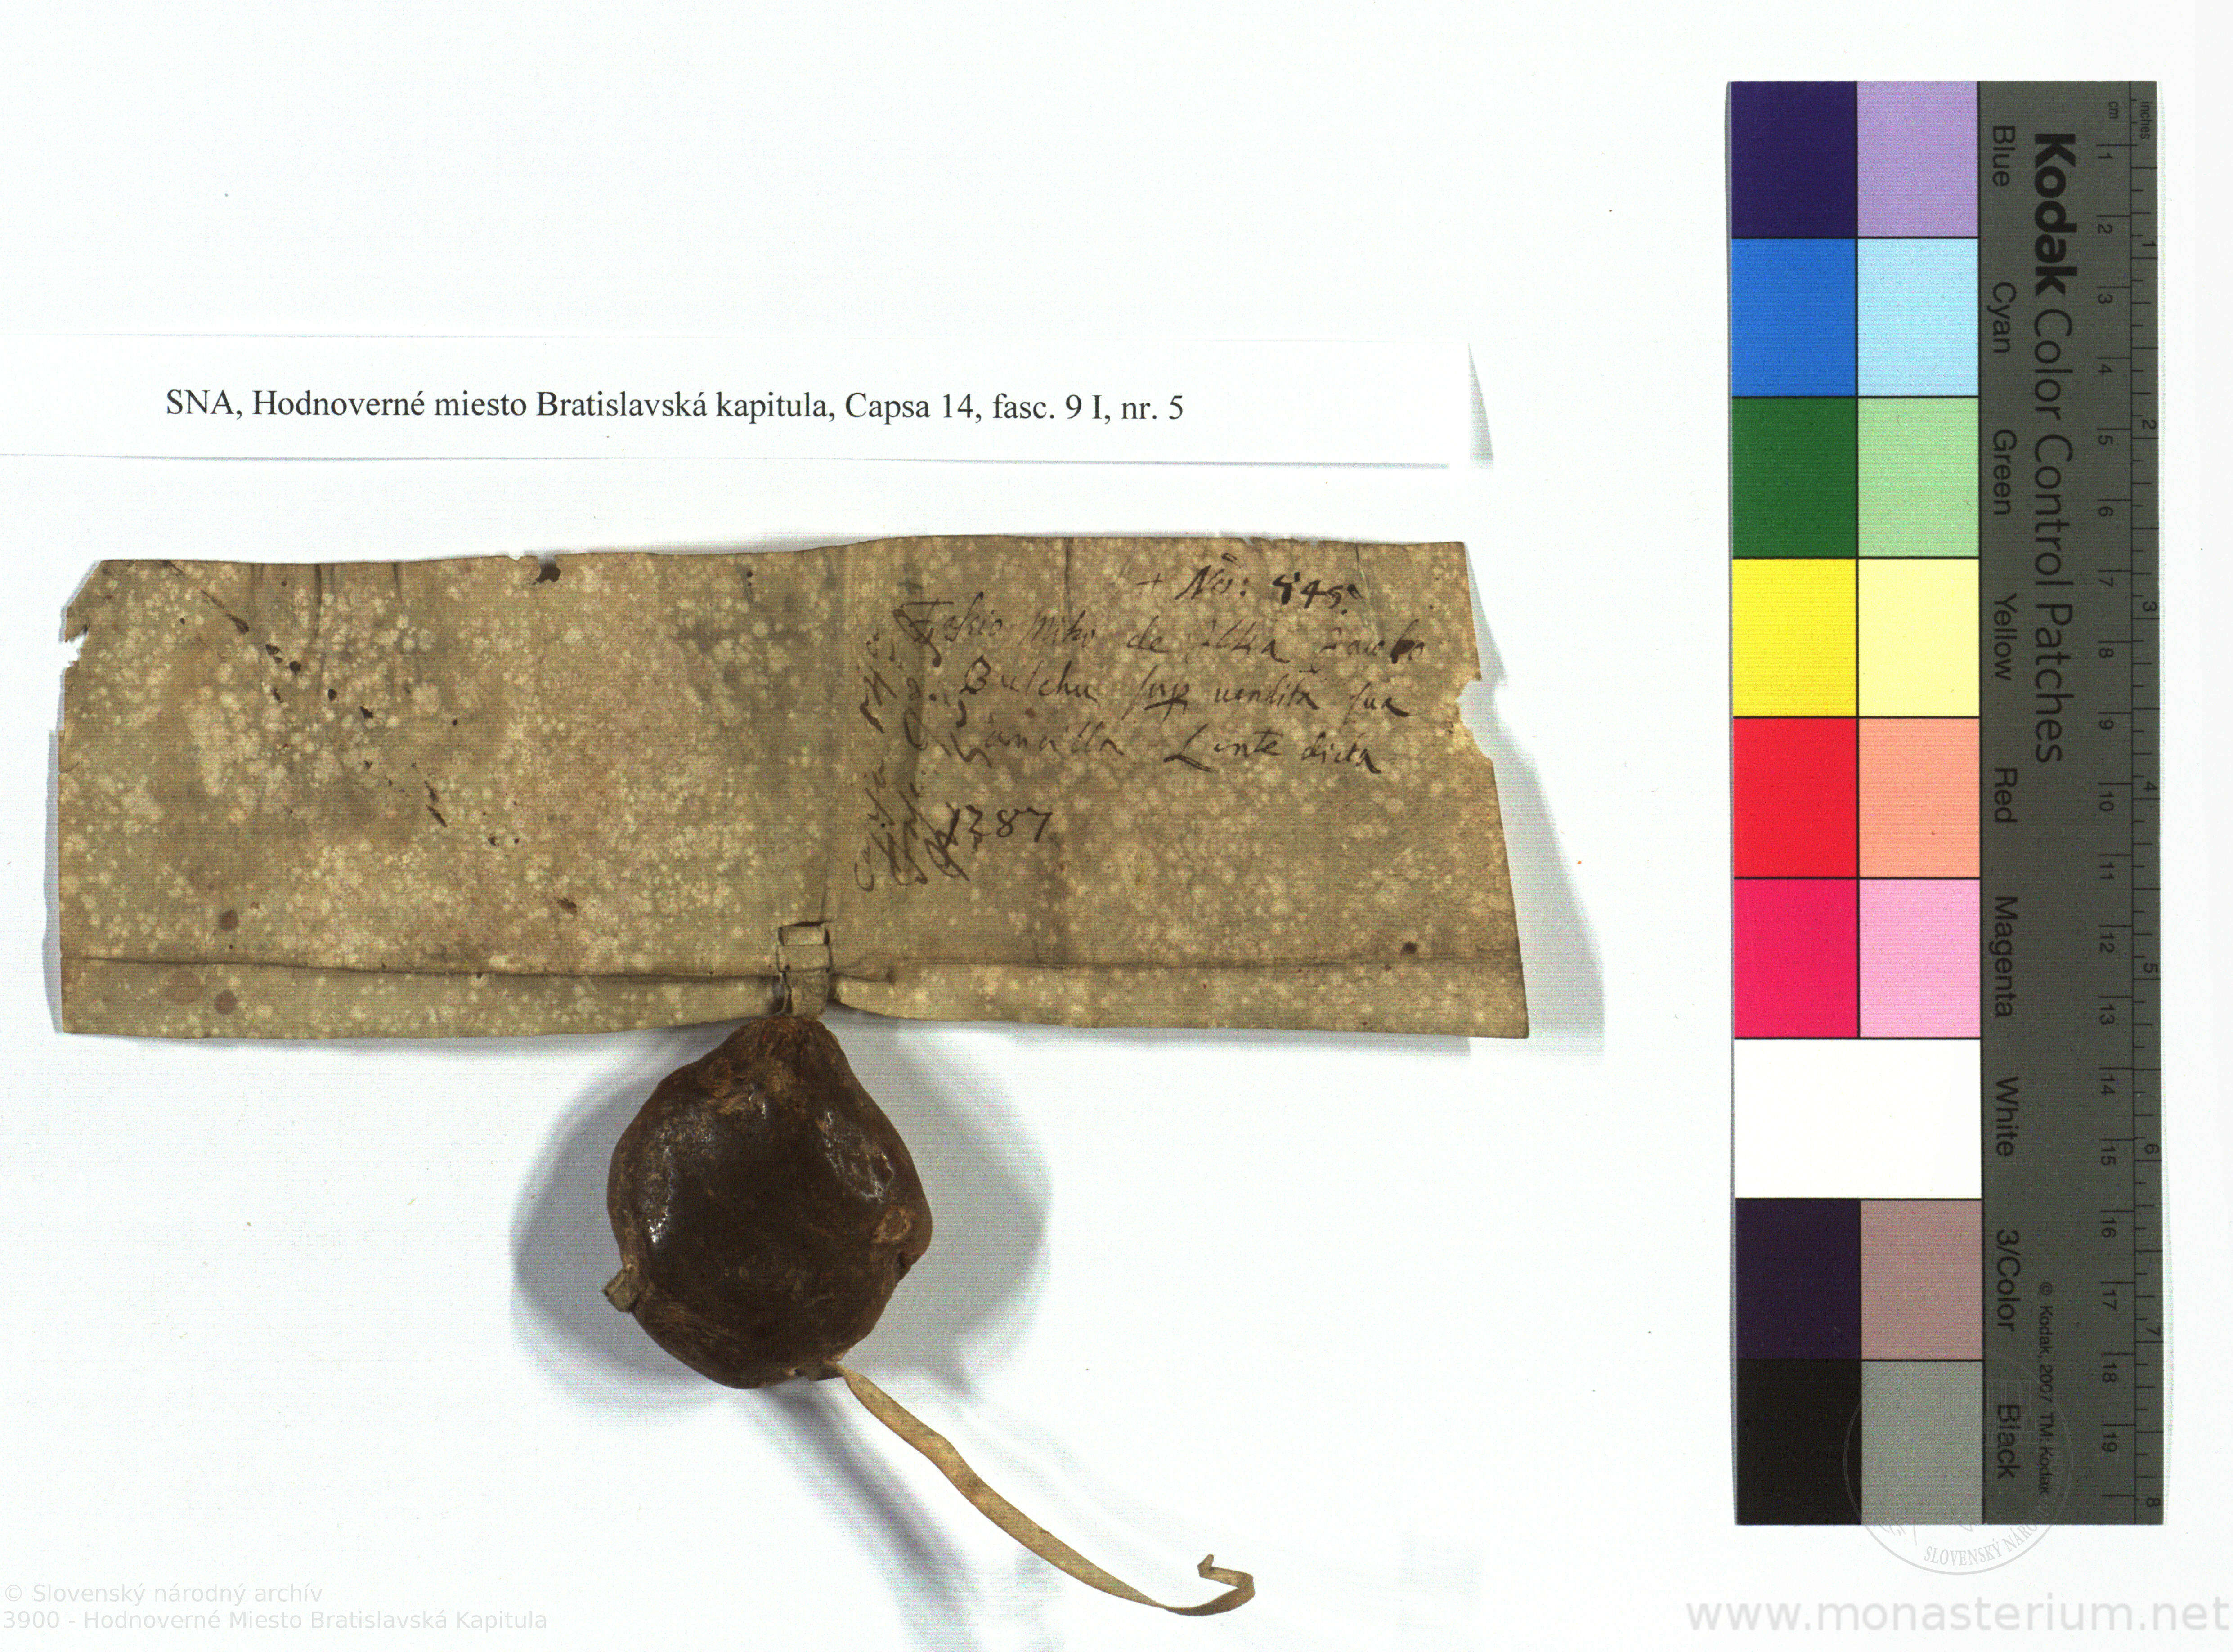 SNA, Hodnoverné miesto Bratislavská kapitula, Capsa 14, fasc. 9 I, nr. 5
+ No:
Fassio de Jacobo
Butchu sup vendita sua
ancilla Lente dicta
1287
Capsa
Kodak Color Control Patches
Blue Cyan Green Yellow Red Magenta White 3/Color Black
© Kodak, 2007 TM: Kodak
cm 1 2 3 4 5 6 7 8 9 10 11 12 13 14 15 16 17 18 19
inches 1 2 3 4 5 6 7 8
SLOVENSKÝ
© Slovenský národný archív
3900 - Hodnoverné Miesto Bratislavská Kapitula
www.monasterium.net